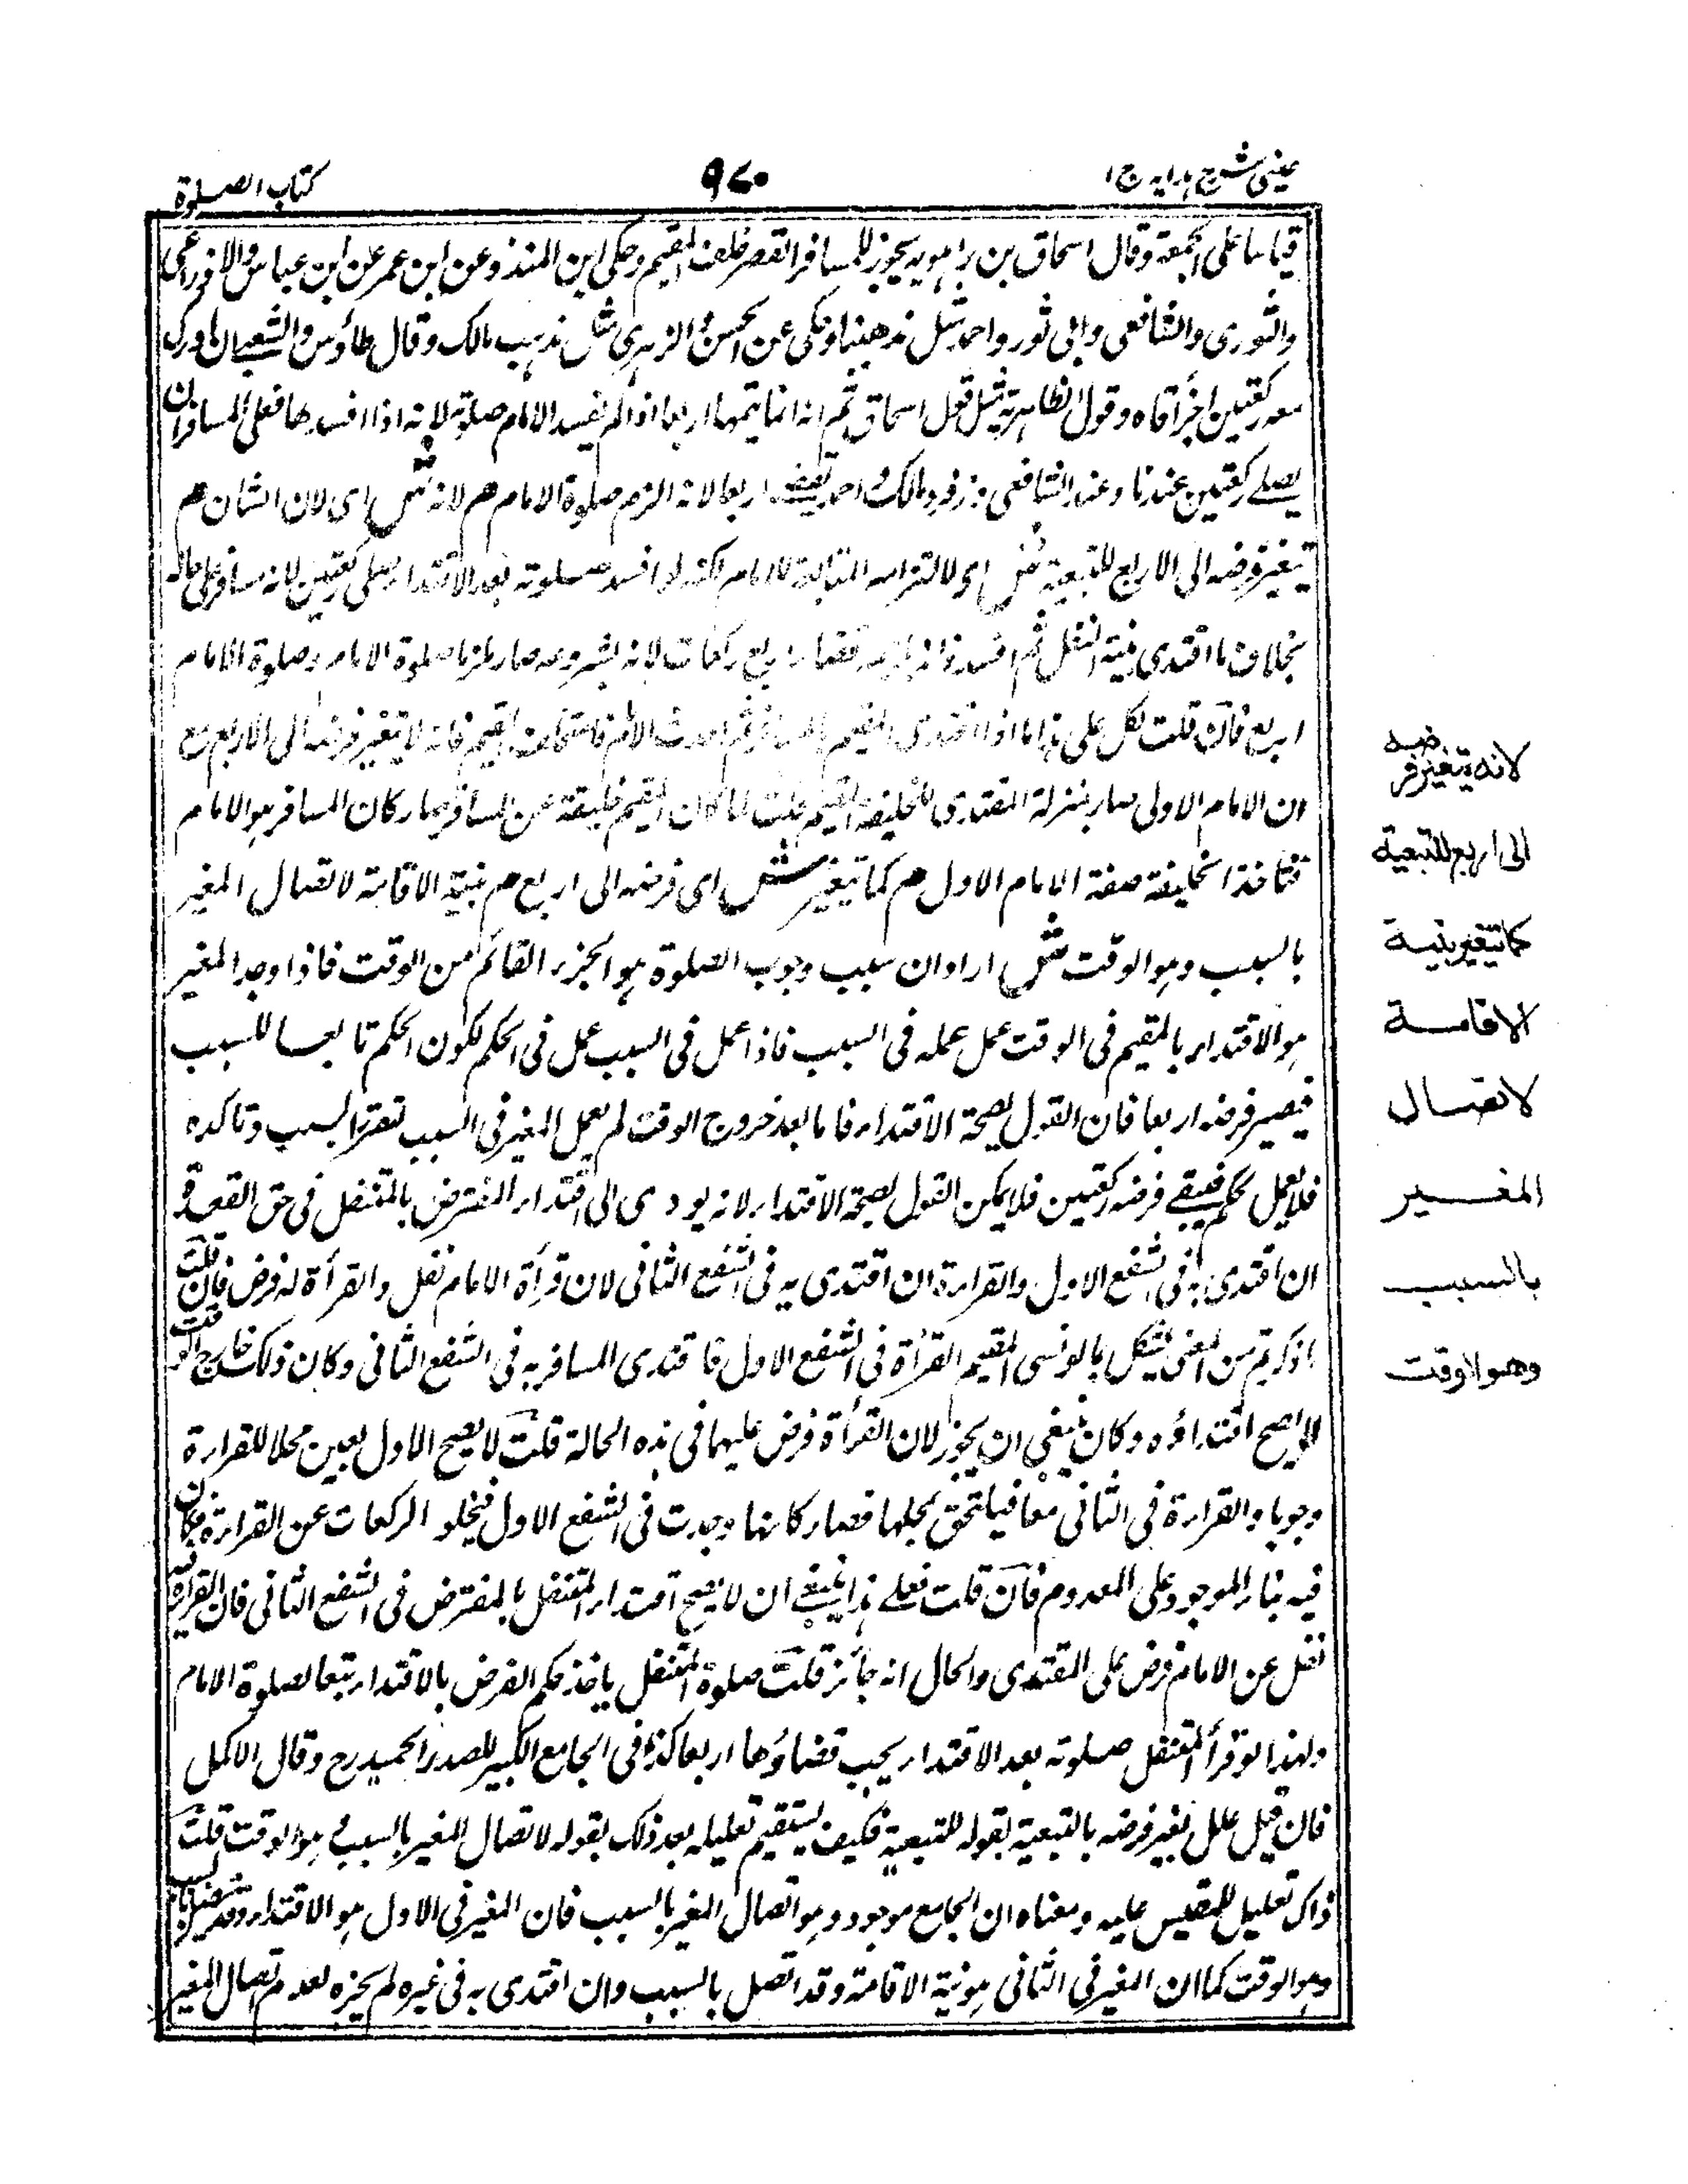 عينى شرح هدايه ج ١
٩٧٠
كتاب الصلوة
قياسا على الجمعة وقال اسحاق بن راهويه يجوز للمسافر القصر خلف المقيم وحكى ابن المنذر وعن ابن عمر عن ابن عباس والاوزاعى
والثورى والشافعى وابى ثور واحمد مثل مذهبنا وحكى عن الحسن والزهرى مثل مذهب مالك وقال طاؤس والشعبى ان ادرك
معه ركعتين اجزأتاه وقول الظاهرية مثل قول اسحاق ثم انه انما يتمها اربعا اذا لم يفسد الامام صلوته لانه اذا افسدها فعلى المسافر ان
يصلے ركعتين عندنا وعند الشافعى وزفر ومالك واحمد اربعا لانه الزم صلوة الامام هم لانه ش اى لان الشان هم
يتغير فرضه الى الاربع للتبعية ش اى لالتزامه المتابعة للامام لكنه لو افسد صلوته بعد الاقتداء صلى ركعتين لانه مسافر على حاله
بخلاف ما اقتدى بنية النفل ثم افسد قضاء اربع ركعات لانه بشروعه صار ملزما صلوة الامام وصلوة الامام
اربع فان قلت على هذا ما اذا اقتدى المقيم بالمسافر ثم احدث الامام فاستخلف المقيم فانه لا يتغير فرضه الى الاربع مع
ان الامام الاولى صار بمنزلة المقتدى للخليفة المقيم قلت لما كان المقيم خليفة عن المسافر صار كان المسافر هو الامام
فتاخذ الخليفة صفة الامام الاول هم كما تتغير ش اى فرضه الى اربع هم بنية الاقامة لاتصال المغير
بالسبب وهو الوقت ش اراد ان سبب وجوب الصلوة هو الجزء القائم من الوقت فاذا وجد المغير
هو الاقتداء بالمقيم فى الوقت عمل عمله فى السبب فاذا عمل فى السبب عمل فى الحكم لكون الحكم تابعا للسبب
فيصير فرضه اربعا فان القول بصحة الاقتداء فاما بعد خروج الوقت لم يعمل المغير فى السبب تقرر السبب وتاكده
فلا يعمل بحكم فيبقے فرضه ركعتين فلا يمكن القول بصحة الاقتداء لانه يودى الى اقتداء المفترض بالمتنفل فى حق القعدة
ان اقتدى به فى الشفع الاول والقراءة ان اقتدى به فى الشفع الثانى لان قرأة الامام نفل والقرأة له فرض فان قلت
ما ذكرتم من المعنى يشكل بما لو نسى المقيم القرأة فى الشفع الاول فاقتدى المسافر به فى الشفع الثانى وكان ذلك خارج الوقت
لا يصح اقتداؤه وكان ينبغى ان يجوز لان القرأة فرض عليهما فى هذه الحالة قلت لا يصح الاول بعين محلا للقراءة
وجوبا والقراءة فى الثانى معا فيلتحق بمحلها فصار كانها وجدت فى الشفع الاول فيخلو الركعات عن القراءة فكان
فيه بناء الموجود على المعدوم فان قلت فعلے هذا ينبغے ان لا يصح اقتداء المتنفل بالمفترض فى الشفع الثانى فان القراءة فيه
نفل عن الامام فرض على المقتدى والحال انه جائز قلت صلوة المتنفل ياخذ حكم الفرض بالاقتداء تبعا لصلوة الامام
ولهذا لو قرأ المتنفل صلوته بعد الاقتداء يجب قضاؤها اربعا كذا فى الجامع الكبير للصدر الحميد رح وقال الاكمل
فان قيل علل تغير فرضه بالتبعية بقوله للتبعية فكيف يستقيم تعليله بعد ذلك بقوله لاتصال المغير بالسبب هو الوقت قلت
ذاك تعليل للمقيس عليه ومعناه ان الجامع موجود وهو اتصال المغير بالسبب فان المغير فى الاول هو الاقتداء وقد اتصل بالسبب
وهو الوقت كما ان المغير فى الثانى هو نية الاقامة وقد اتصل بالسبب وان اقتدى به فى غيره لم يجزه لعدم اتصال المغير
لانه يتغير فرضه
الى اربع للتبعية
كما يتغير بنية
الاقامة
لاتصال
المغير
بالسبب
وهو الوقت